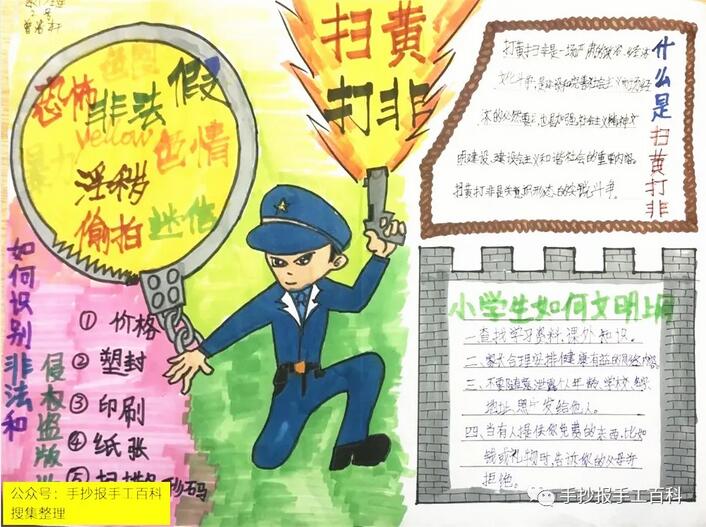 恐怖
非法
假
色情
yellow
暴力
淫秽
偷拍
迷信
扫黄
打非
什么是扫黄打非
打黄扫非是一场严肃的政治、经济
文化斗争,是
体的必然要求,也是加强社会主义精神文
明建设、建设会主义和谐社会的重要内容。
扫黄打非是
如何识别非法和
侵权盗版
① 价格
② 塑封
③ 印刷
④ 纸张
⑤
小学生如何文明上网
一、查找学习资料,课外知识。
二、
三、不要随意泄露个人年龄、学校、
地址、照片发给他人。
四、当有人提供你免费的东西,比如
钱或礼物时,告诉你的父母并
拒绝。
公众号:手抄报手工百科
搜集整理
手抄报手工百科